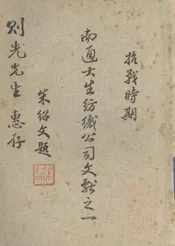 抗戰時期
南通大生紡織公司文獻之一
朱紹文題
則光先生 惠存